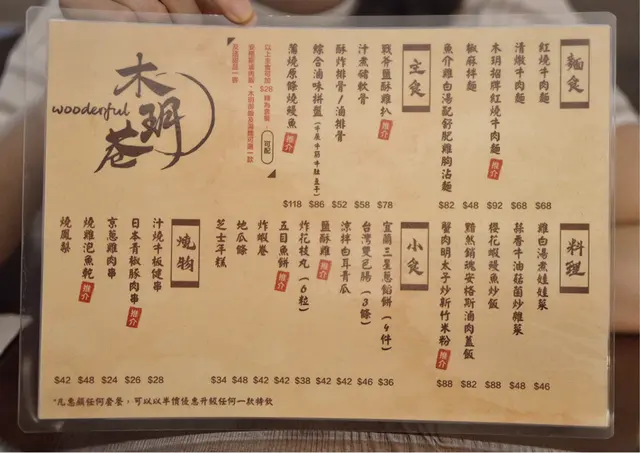 麵炙
紅燒牛肉麵 $68
清燉牛肉麵 $68
木玥招牌紅燒牛肉麵 推介 $92
椒麻拌麵 $48
魚介雞白湯配舒肥雞胸沾麵 $82
主炙
戰斧鹽酥雞扒 推介 $78
汁煮豬軟骨 $58
酥炸排骨/滷排骨 $52
綜合滷味拼盤 $86
蒲燒原條燒鰻魚 推介 $118
可配
以上主食可加$28轉為套餐
木玥巷
wooderful
料理
雞白湯煮娃娃菜 $46
蒜香牛油菇菌炒雜菜 $48
櫻花蝦鰻魚炒飯 $88
黯然銷魂安格斯滷肉蓋飯 $82
蟹肉明太子炒新竹米粉 推介 $88
小炙
宜蘭三星蔥餡餅(4件) $36
台灣雙色腸(3條) $46
涼拌白耳青瓜 $42
鹽酥雞 推介 $42
炸花枝丸(6粒) $38
五目魚餅 推介 $42
炸蝦卷 $42
地瓜條 $48
芝士年糕 $34
燒物
汁燒牛板健串 $28
日本青椒豚肉串 推介 $26
京蔥雞肉串 $24
燒雞泡魚乾 推介 $48
燒鳳梨 $42
*凡惠顧任何套餐，可以以半價優惠升級任何一款特飲